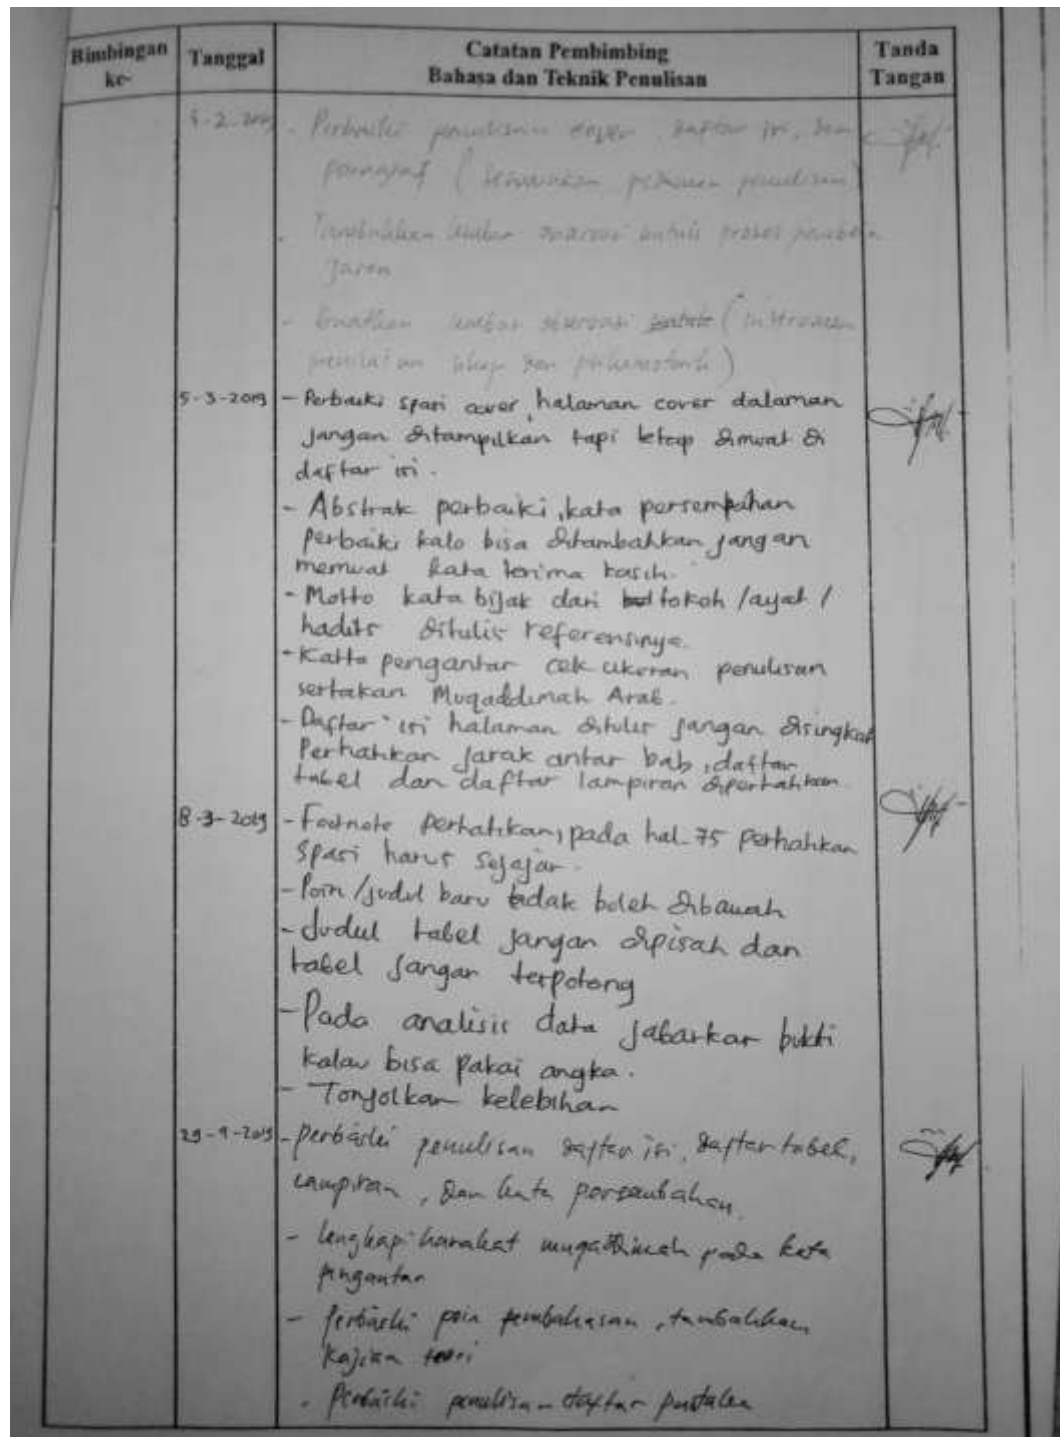 Bimbingan ke-
Tanggal
Catatan Pembimbing
Bahasa dan Teknik Penulisan
Tanda
Tangan
- Perbaiki penulisan cover, daftar isi, dan
paragraf ( pedoman penulisan)
- Tambahkan lembar untuk proses pembela
jaran
- lembar observasi (instrumen
penilaian sikap dan )
5-3-2019
- Perbaiki spasi cover, halaman cover dalaman
jangan ditampilkan tapi tetap dimuat di
daftar isi.
- Abstrak perbaiki, kata persempahan
perbaiki kalo bisa ditambahkan jangan
memuat kata terima kasih.
- Motto kata bijak dari tokoh /ayat /
hadits ditulis referensinya.
- Katta pengantar cek ukuran penulisan
sertakan Muqaddimah Arab.
- Daftar isi halaman ditulis jangan disingkat
Perhatikan jarak antar bab, daftar
tabel dan daftar lampiran diperhatikan
8-3-2019
- Footnote perhatikan, pada hal. 75 perhatikan
spasi harus sejajar.
- Poin /judul baru tidak boleh dibawah
- Judul tabel jangan dipisah dan
tabel jangan terpotong
- Pada analisis data jabarkan bukti
kalau bisa pakai angka.
- Tonjolkan kelebihan
- perbaiki penulisan daftar isi, daftar tabel,
lampiran, dan kata persembahan.
- lengkapi harakat muqaddimah pada kata
pngantar
- Perbaiki poin pembahasan, tambahkan
kajian teori
- Perbaiki penulisan daftar pustaka